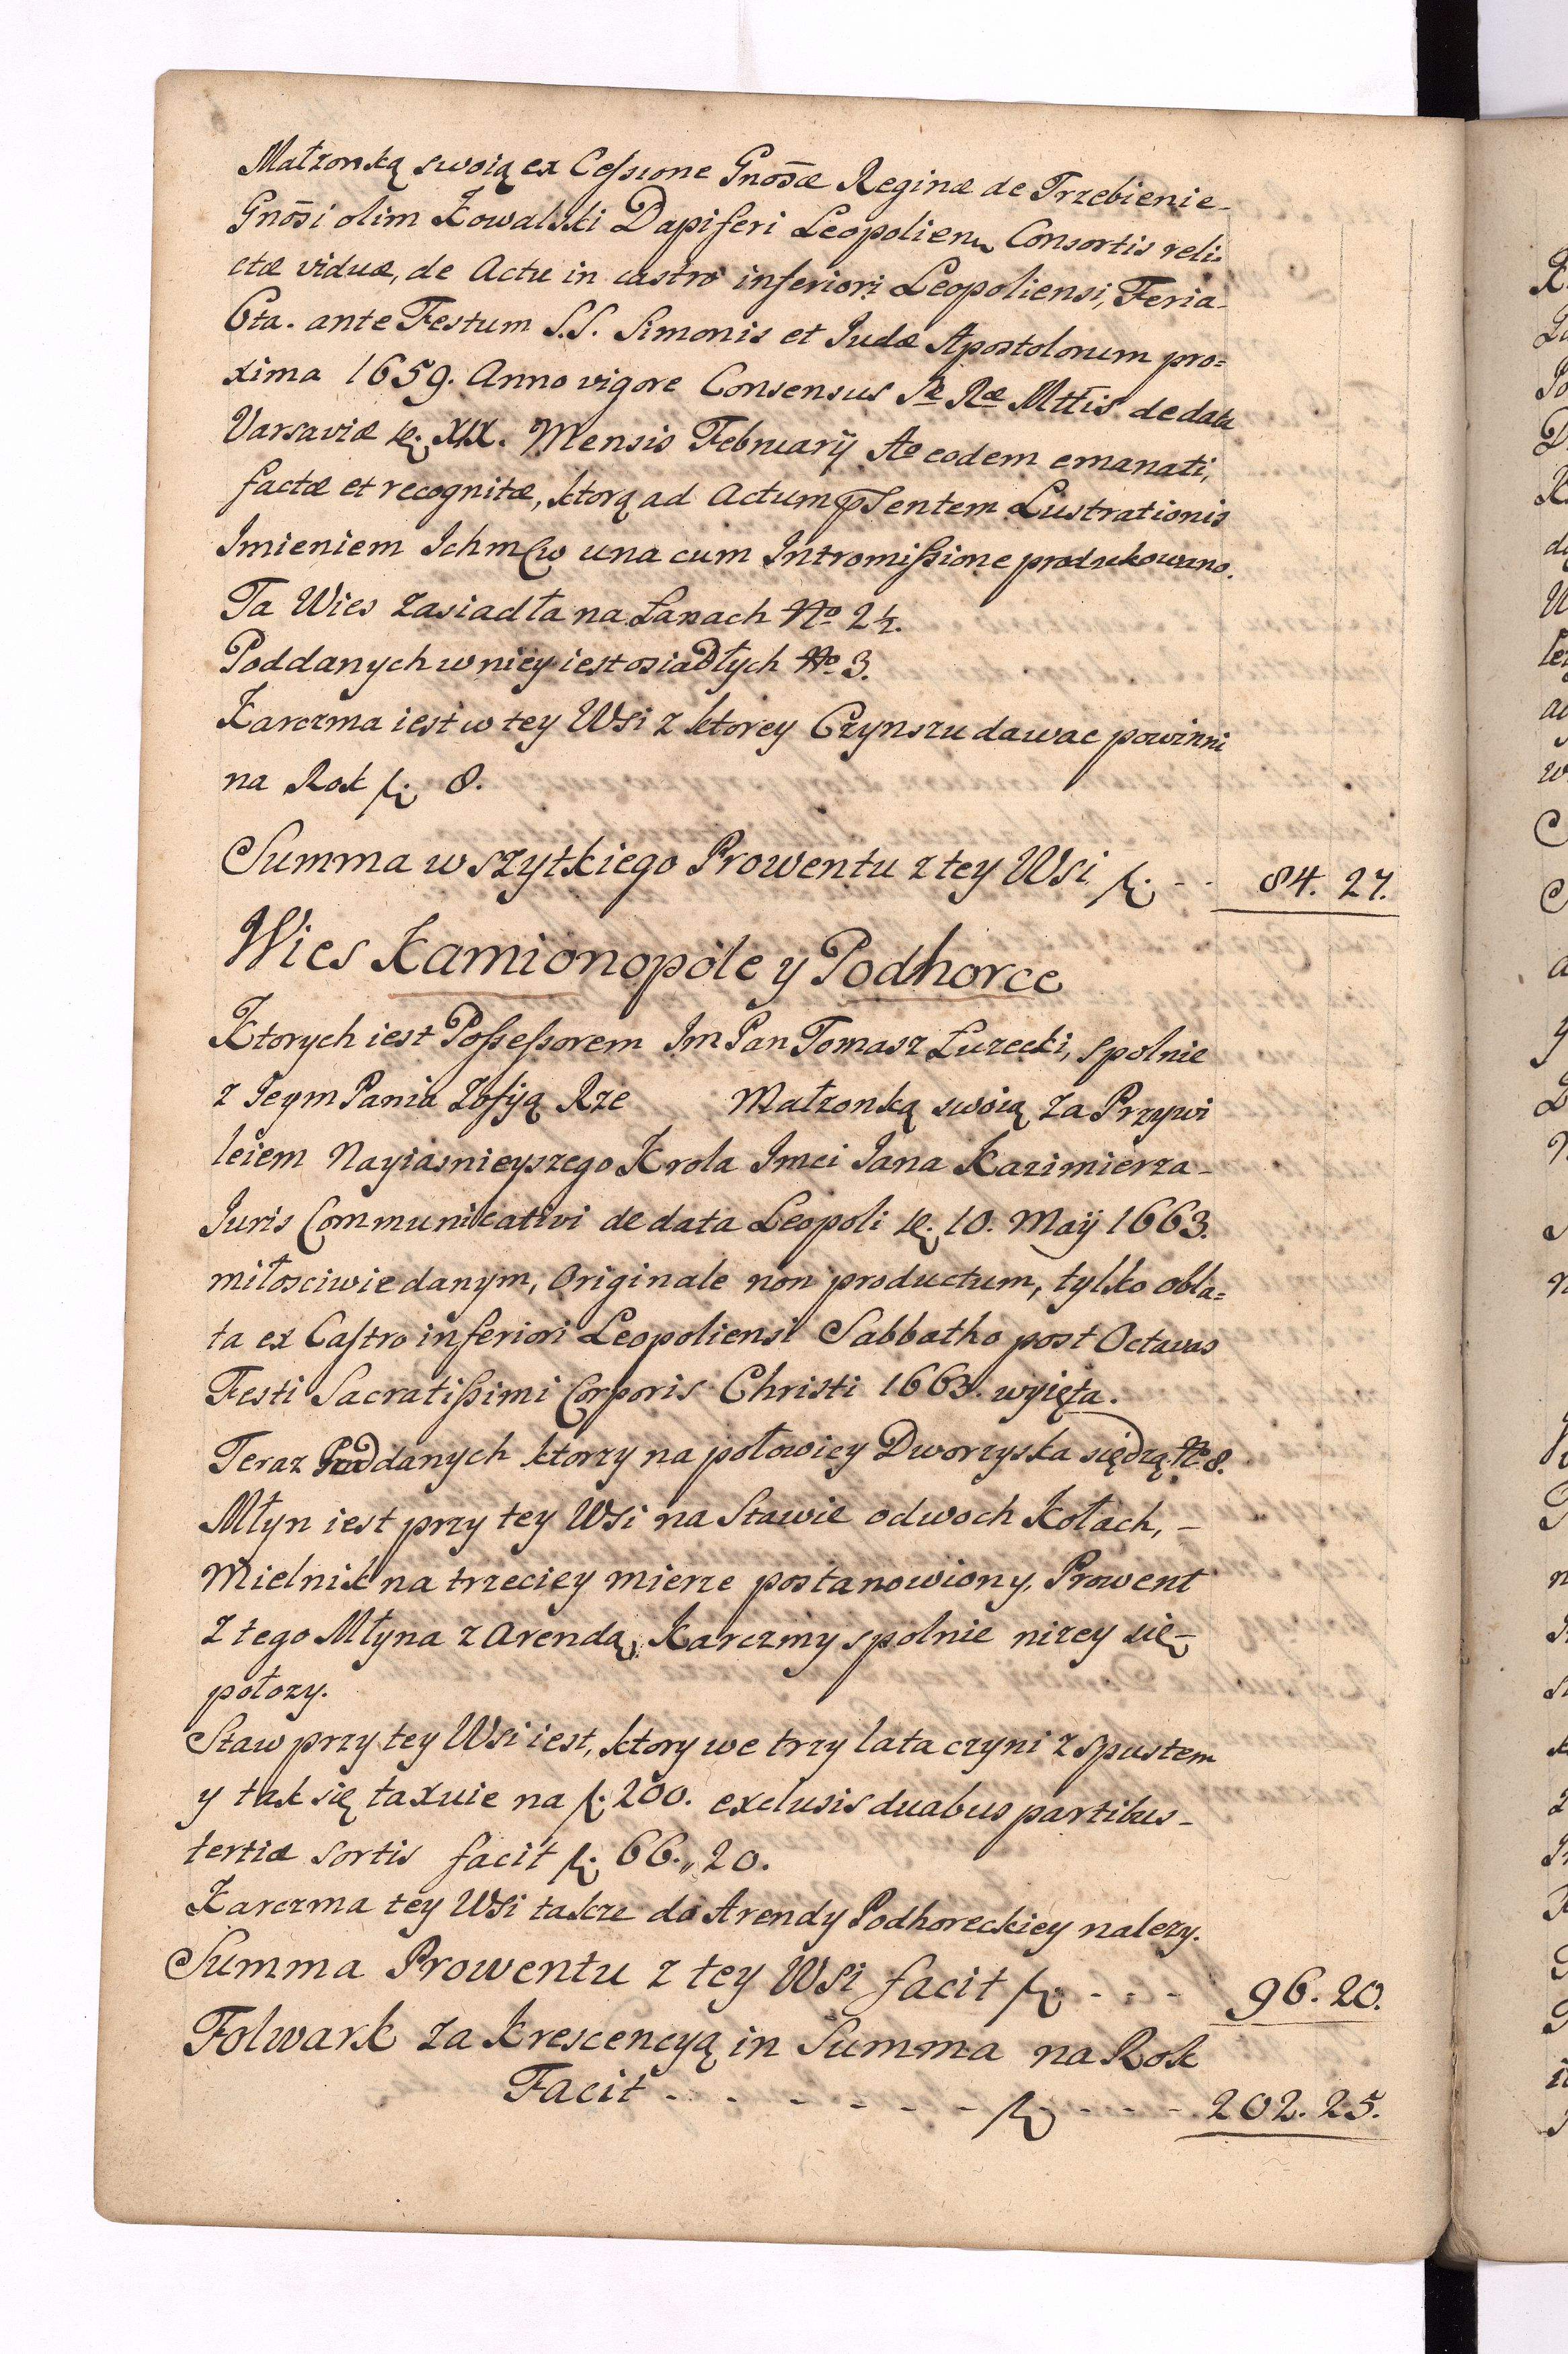 Małzonką swoią ex Cessione Gnosæ Reginæ de Trzebienie-
Gnosi olim Kowalski Dapiferi Leopolien Consortis reli-
ctæ viduæ, de Actu in castro inferiori Leopoliensi, Feria-
6ta. ante Festum S.S. Simonis et Judæ Apostolorum pro=
xima 1659. Anno vigore Consensus Sæ Ræ Mttis de data
Varsaviæ XIX. Mensis February Ao eodem emanati,
factæ et recognitæ, ktorą ad Actum pñsentem Lustrationis
Imieniem Ichmćw una cum Intromissione produkowano.
Ta Wies zasiadła na Łanach No 2½.
Poddanych w niey iest osiadłych No 3.
Karczma iest w tey Wsi z ktorey Czynszu dawac powinni
na Rok fl. 8.
Summa wszytkiego Prowentu z tey Wsi fl. - - 84. 27.
Wies Kamionopole y Podhorce
Ktorych iest Possessorem Im Pan Tomasz Łuzecki, spolnie
z Jeym Pania Zofyą Rze Małzonką swoią za Przywi
leiem Nayiasnieyszego Krola Imci Jana Kazimierza-
Juris Communicativi de data Leopoli 10. Maÿ 1663.
miłosciwie danym, Originale non productum, tylko obla=
ta ex Castro inferiori Leopoliensi Sabbatho post Octavas
Festi Sacratissimi Corporis Christi 1663. wyięta.
Teraz Poddanych ktorzy na połowicy Dworzyska siędzą No 8.
Młyn iest przy tey Wsi na Stawie o dwoch Kołach, -
Mielnik na trzeciey mierze postanowiony, Prowent
z tego Młyna z Arendą, Karczmy spolnie nizey się-
połozy.
Staw przy tey Wsi iest, ktory we trzy lata czyni z spustem
y tak się taxuie na fl. 200. exclusis duabus partibus-
tertiæ sortis facit fl. 66.,, 20.
Karczma tey Wsi takze do Arendy Podhoreckiey nalezy.
Summa Prowentu z tey Wsi facit fl. - - - 96. 20.
Folwark za Krescencyą in Summa na Rok
Facit - - - - - - fl. - - - 202. 25.